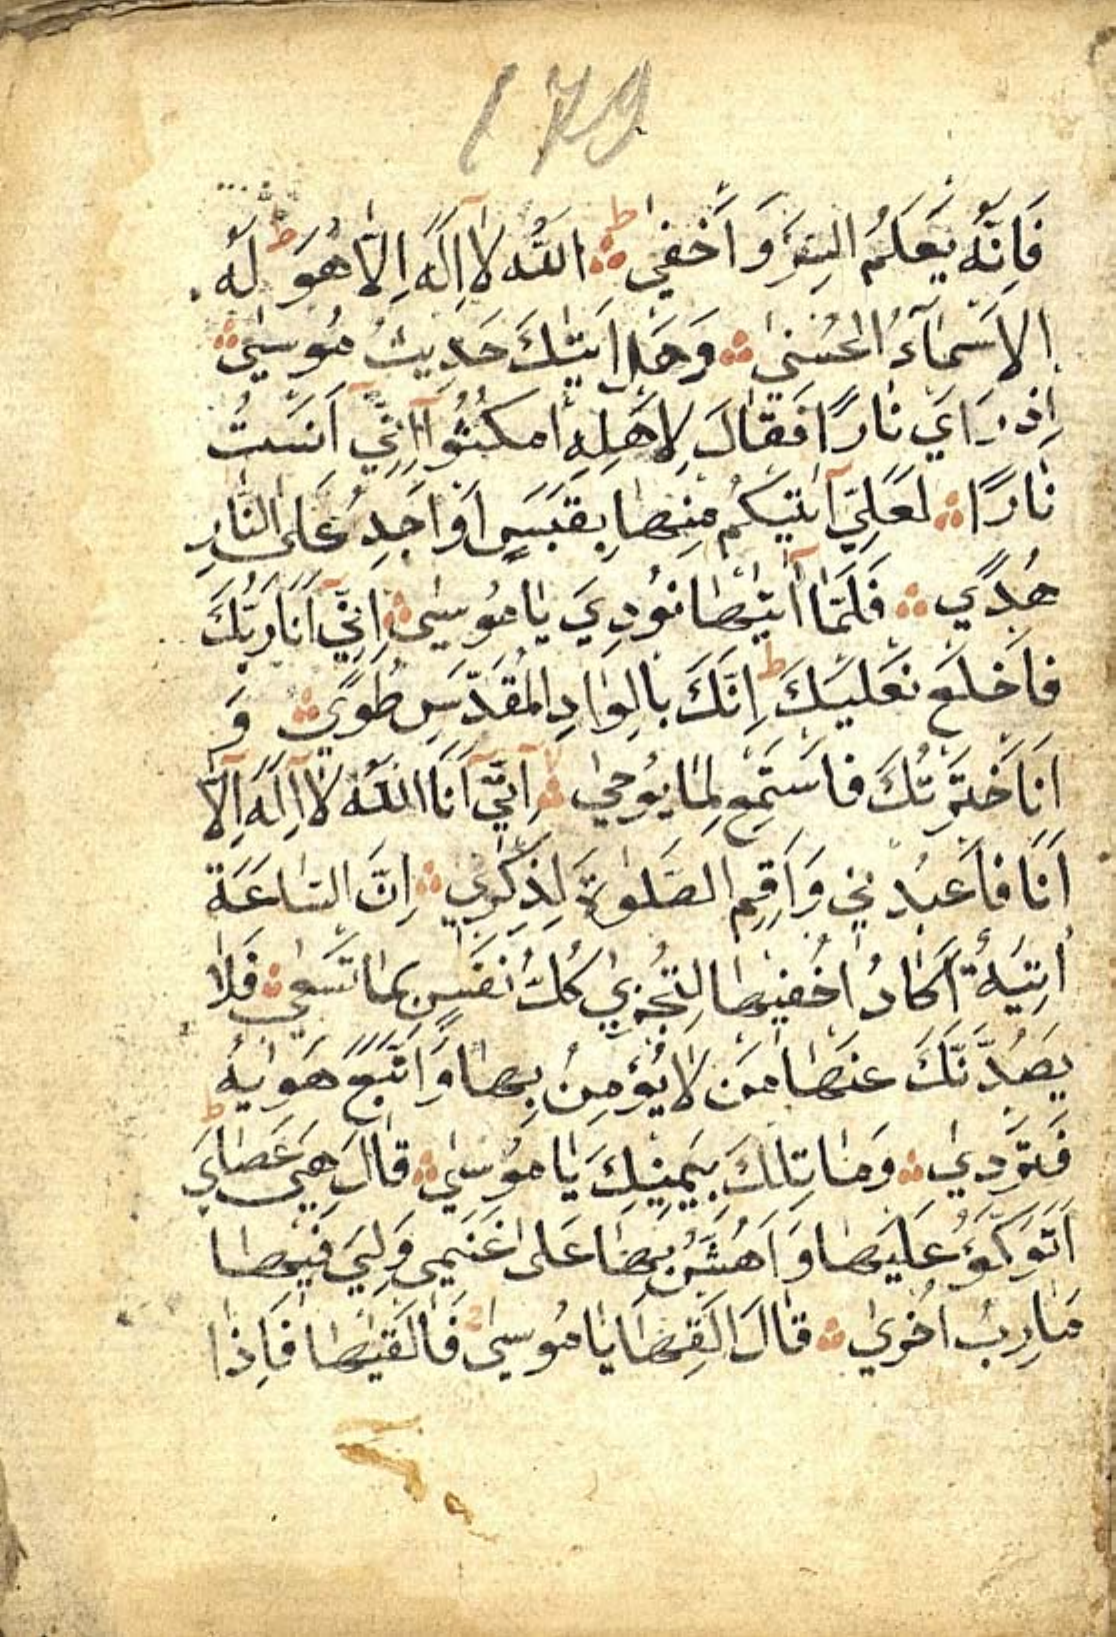 179
فَاِنَّهُ يَعْلَمُ السِّرَّ وَاَخْفٰي ط اَللّٰهُ لَا اِلٰهَ اِلَّا هُوَ ط لَهُ
الْاَسْمَآءُ الْحُسْنٰي وَهَلْ اَتٰيكَ حَدِيثُ مُوسٰي
اِذْ رَاَيَ نَارًا فَقَالَ لِاَهْلِهِ امْكُثُوآ اِنِّيٓ اَنَسْتُ
نَارًا لَعَلِّيٓ اٰتِيكُمْ مِنْهَا بِقَبَسٍ اَوْ اَجِدُ عَلَي النَّارِ
هُدًي فَلَمَّآ اَتٰيهَا نُودِيَ يَا مُوسٰي اِنِّيٓ اَنَا رَبُّكَ
فَاخْلَعْ نَعْلَيْكَ ط اِنَّكَ بِالْوَادِ الْمُقَدَّسِ طُوًي وَ
اَنَا خْتَرْتُكَ فَاسْتَمِعْ لِمَا يُوحٰي اِنَّنِيٓ اَنَا اللّٰهُ لَآ اِلٰهَ اِلَّآ
اَنَا فَاعْبُدْنِي وَاَقِمِ الصَّلٰوةَ لِذِكْرِي اِنَّ السَّاعَةَ
اٰتِيَةٌ اَكَادُ اُخْفِيهَا لِتُجْزٰي كُلُّ نَفْسٍ بِمَا تَسْعٰي فَلَا
يَصُدَّنَّكَ عَنْهَا مَنْ لَا يُؤْمِنُ بِهَا وَاتَّبَعَ هَوٰيهُ
فَتَرْدٰي وَمَا تِلْكَ بِيَمِينِكَ يَا مُوسٰي قَالَ هِيَ عَصَايَ ط
اَتَوَكَّؤُ عَلَيْهَا وَاَهُشُّ بِهَا عَلٰي غَنَمِي وَلِيَ فِيهَا
مَاٰرِبُ اُخْرٰي قَالَ اَلْقِهَا يَا مُوسٰي فَاَلْقٰيهَا فَاِذَا